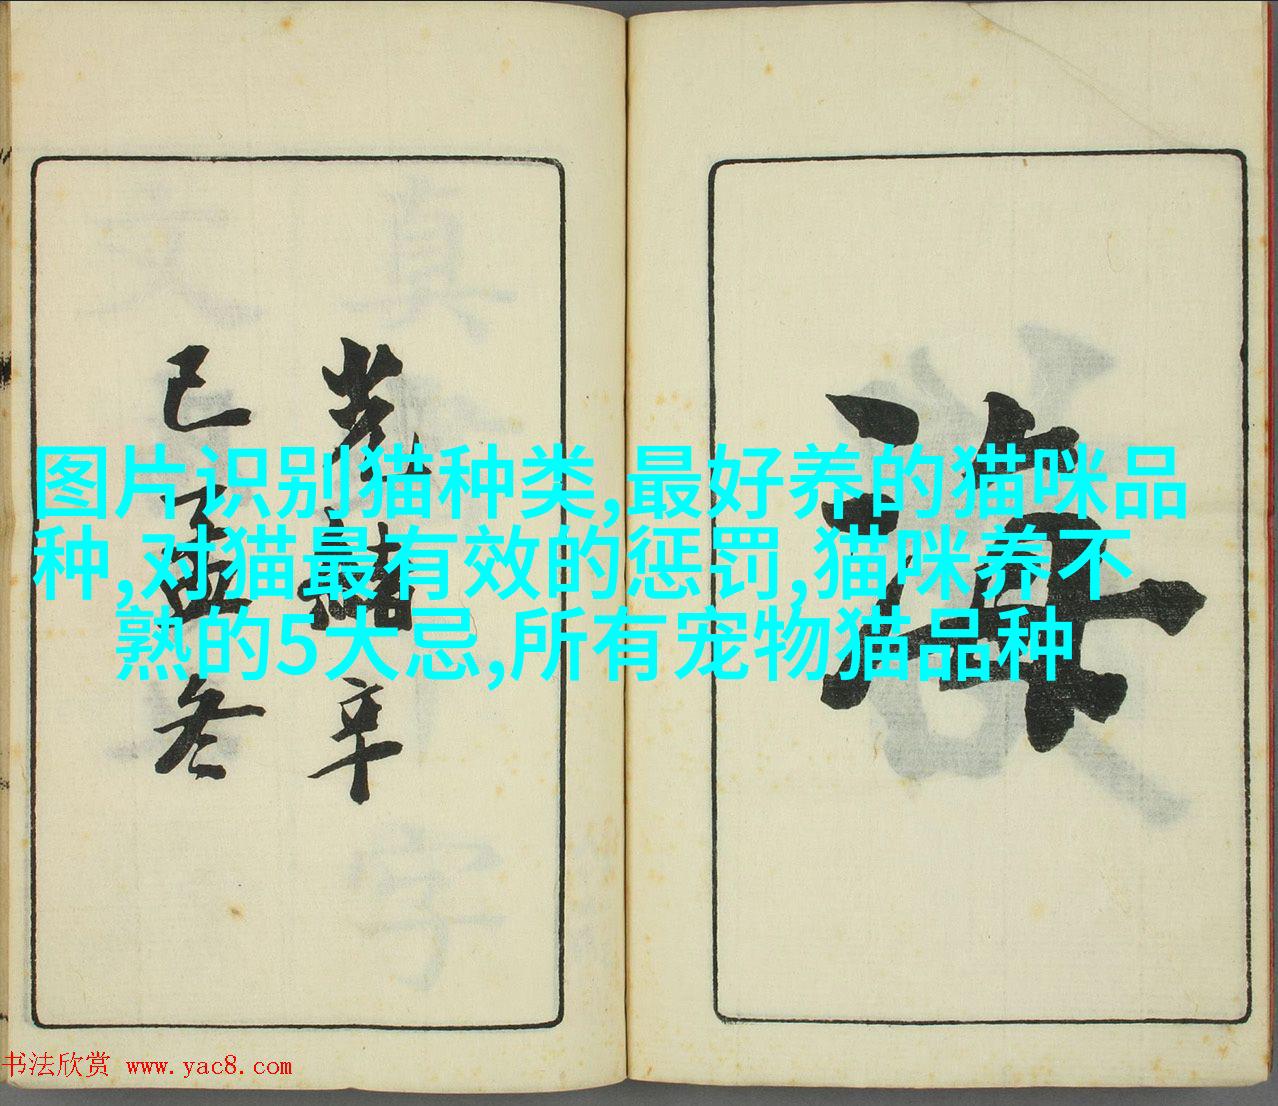 海
光緒辛
已孟冬
图片识别猫种类,最好养的猫咪品
种,对猫最有效的惩罚,猫咪养不
熟的5大忌,所有宠物猫品种
书法欣赏 www.yac8.com